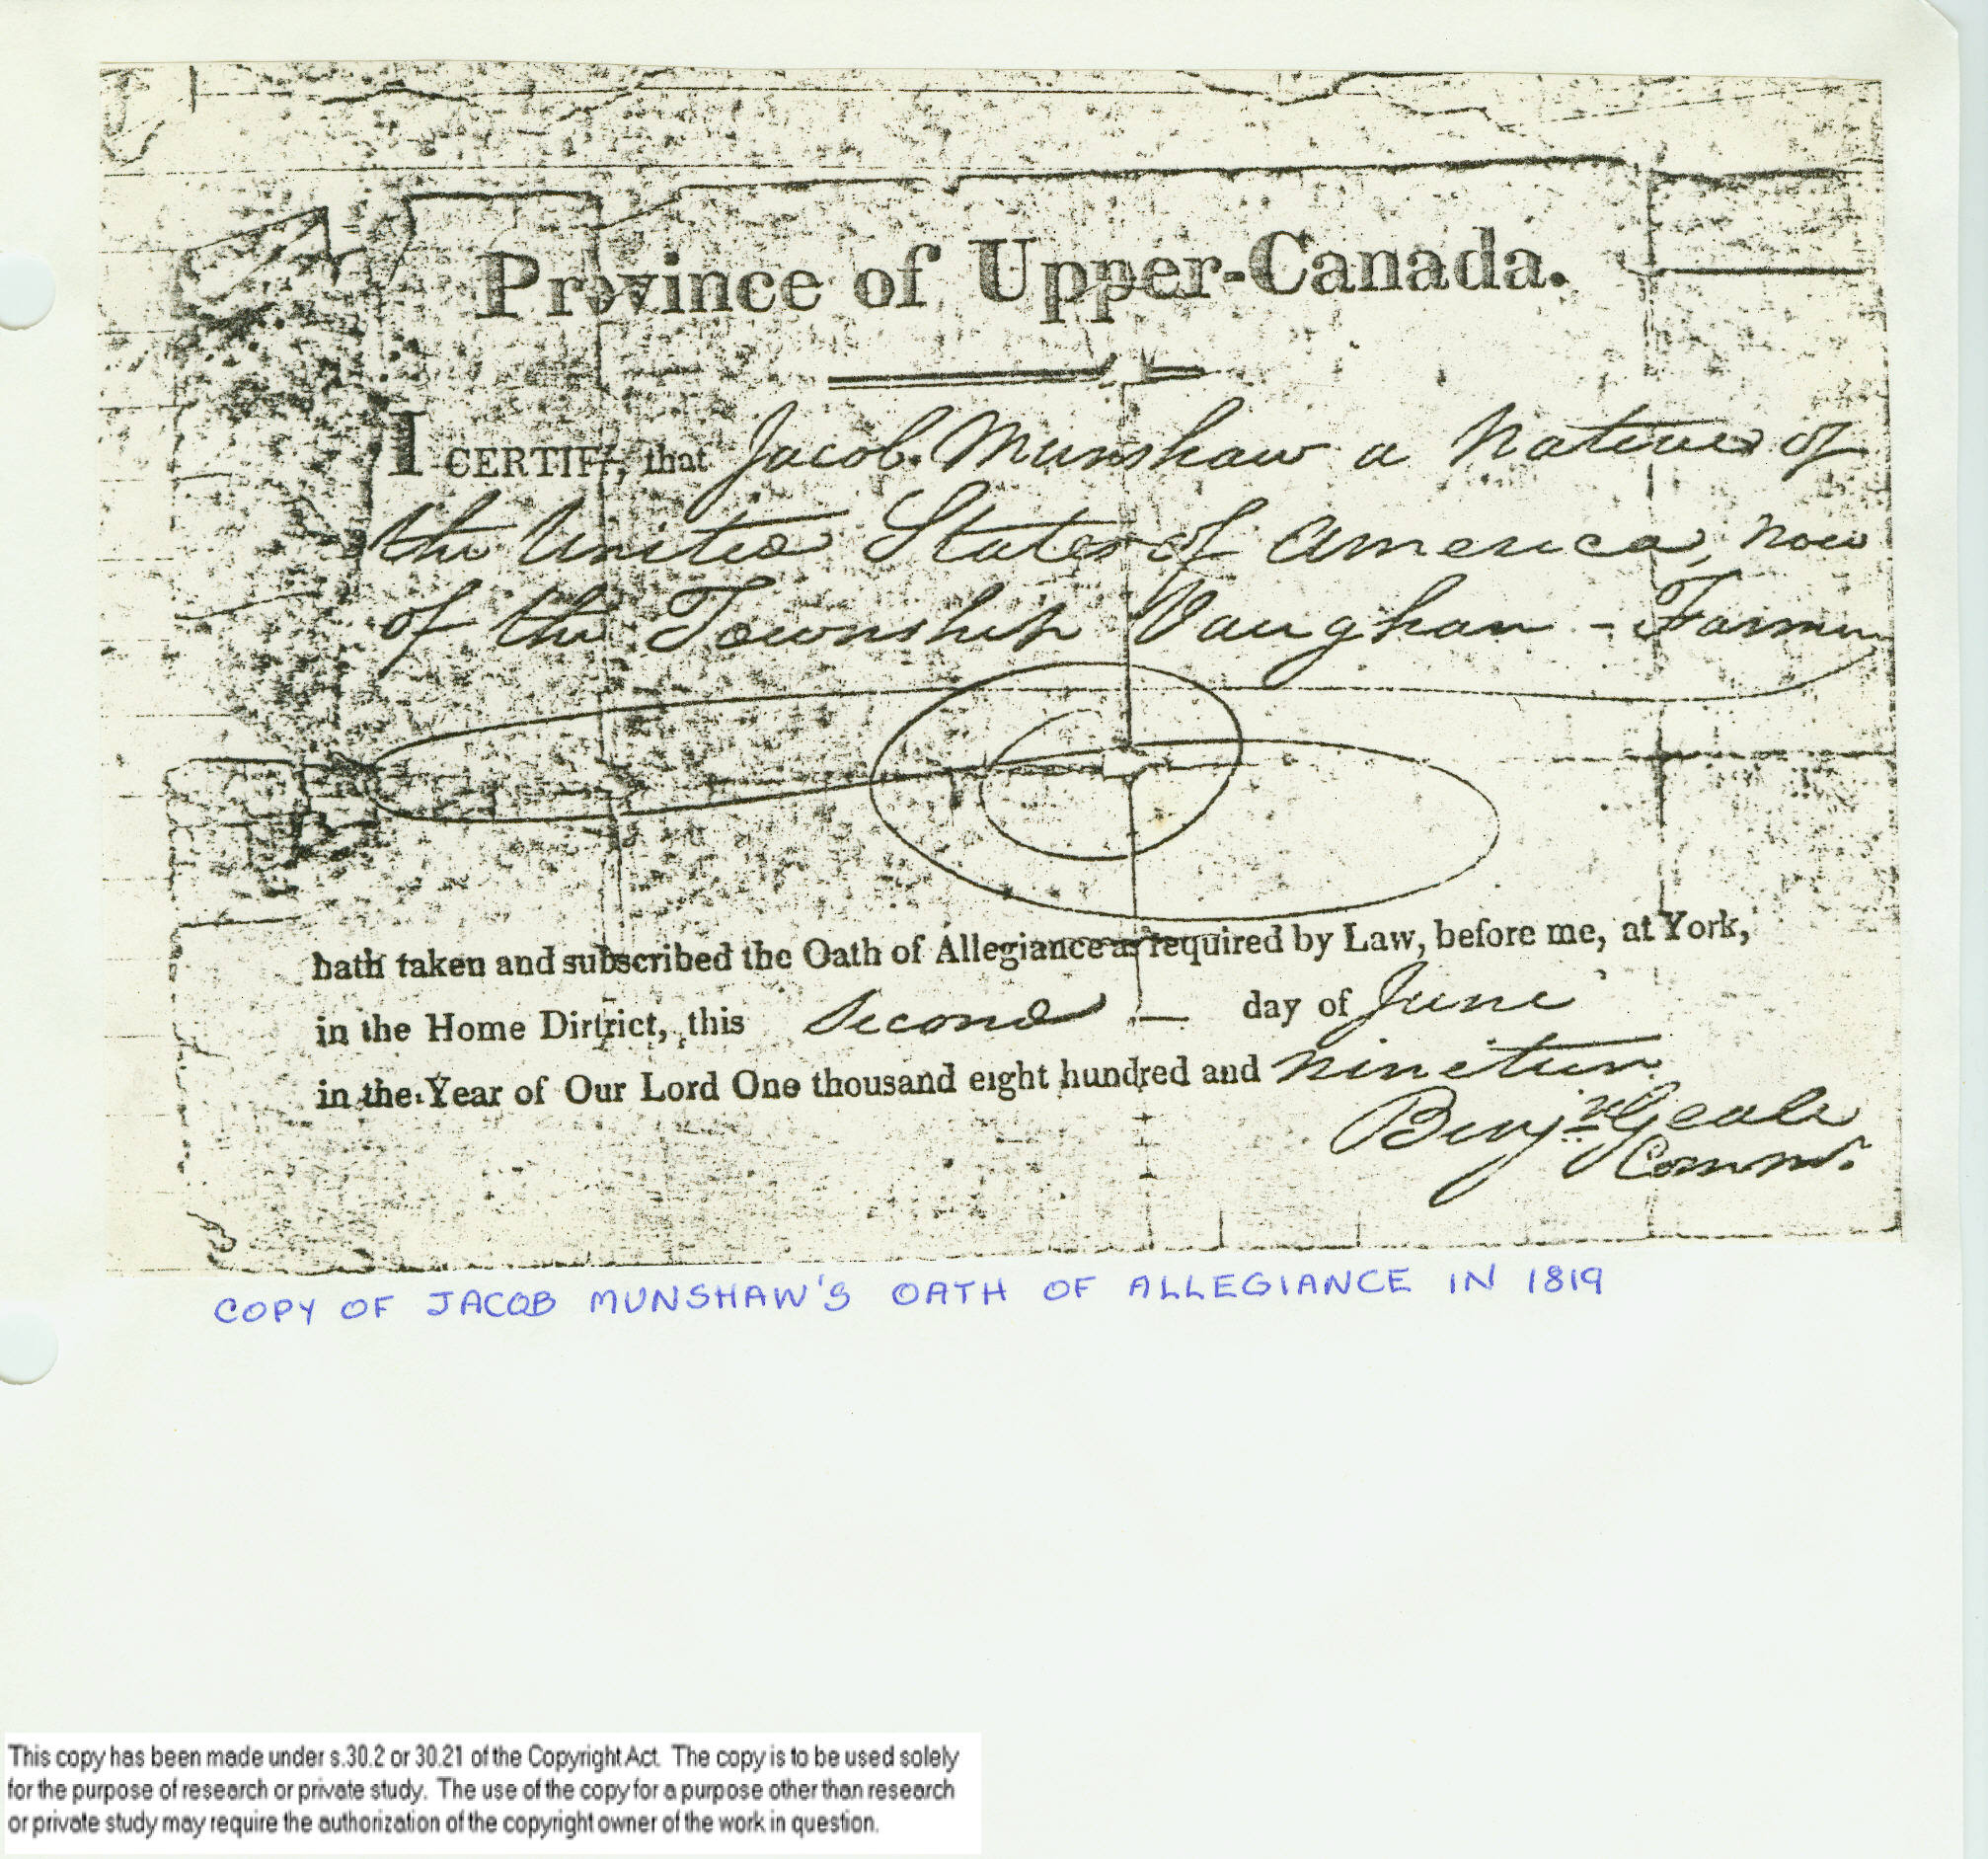 Province of Upper-Canada.
I CERTIFY, that Jacob Munshaw a Native of
the United States of America, now
of the Township Vaughan - Farmer
hath taken and subscribed the Oath of Allegiance as required by Law, before me, at York,
in the Home District, this Second — day of June
in the Year of Our Lord One thousand eight hundred and nineteen
Benjn Geale
Commr.
COPY OF JACOB MUNSHAW'S OATH OF ALLEGIANCE IN 1819
This copy has been made under s.30.2 or 30.21 of the Copyright Act. The copy is to be used solely
for the purpose of research or private study. The use of the copy for a purpose other than research
or private study may require the authorization of the copyright owner of the work in question.